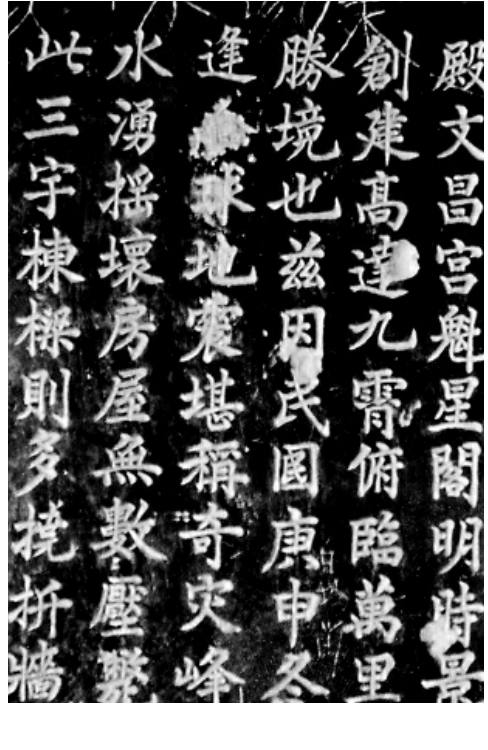 殿文昌宫魁星閣明時景
創建髙達九霄俯臨萬里
勝境也兹因民國庚申冬
逢球地震堪稱奇灾峰
水湧摇壞房屋無數壓斃
此三宇棟樑則多撓拆牆